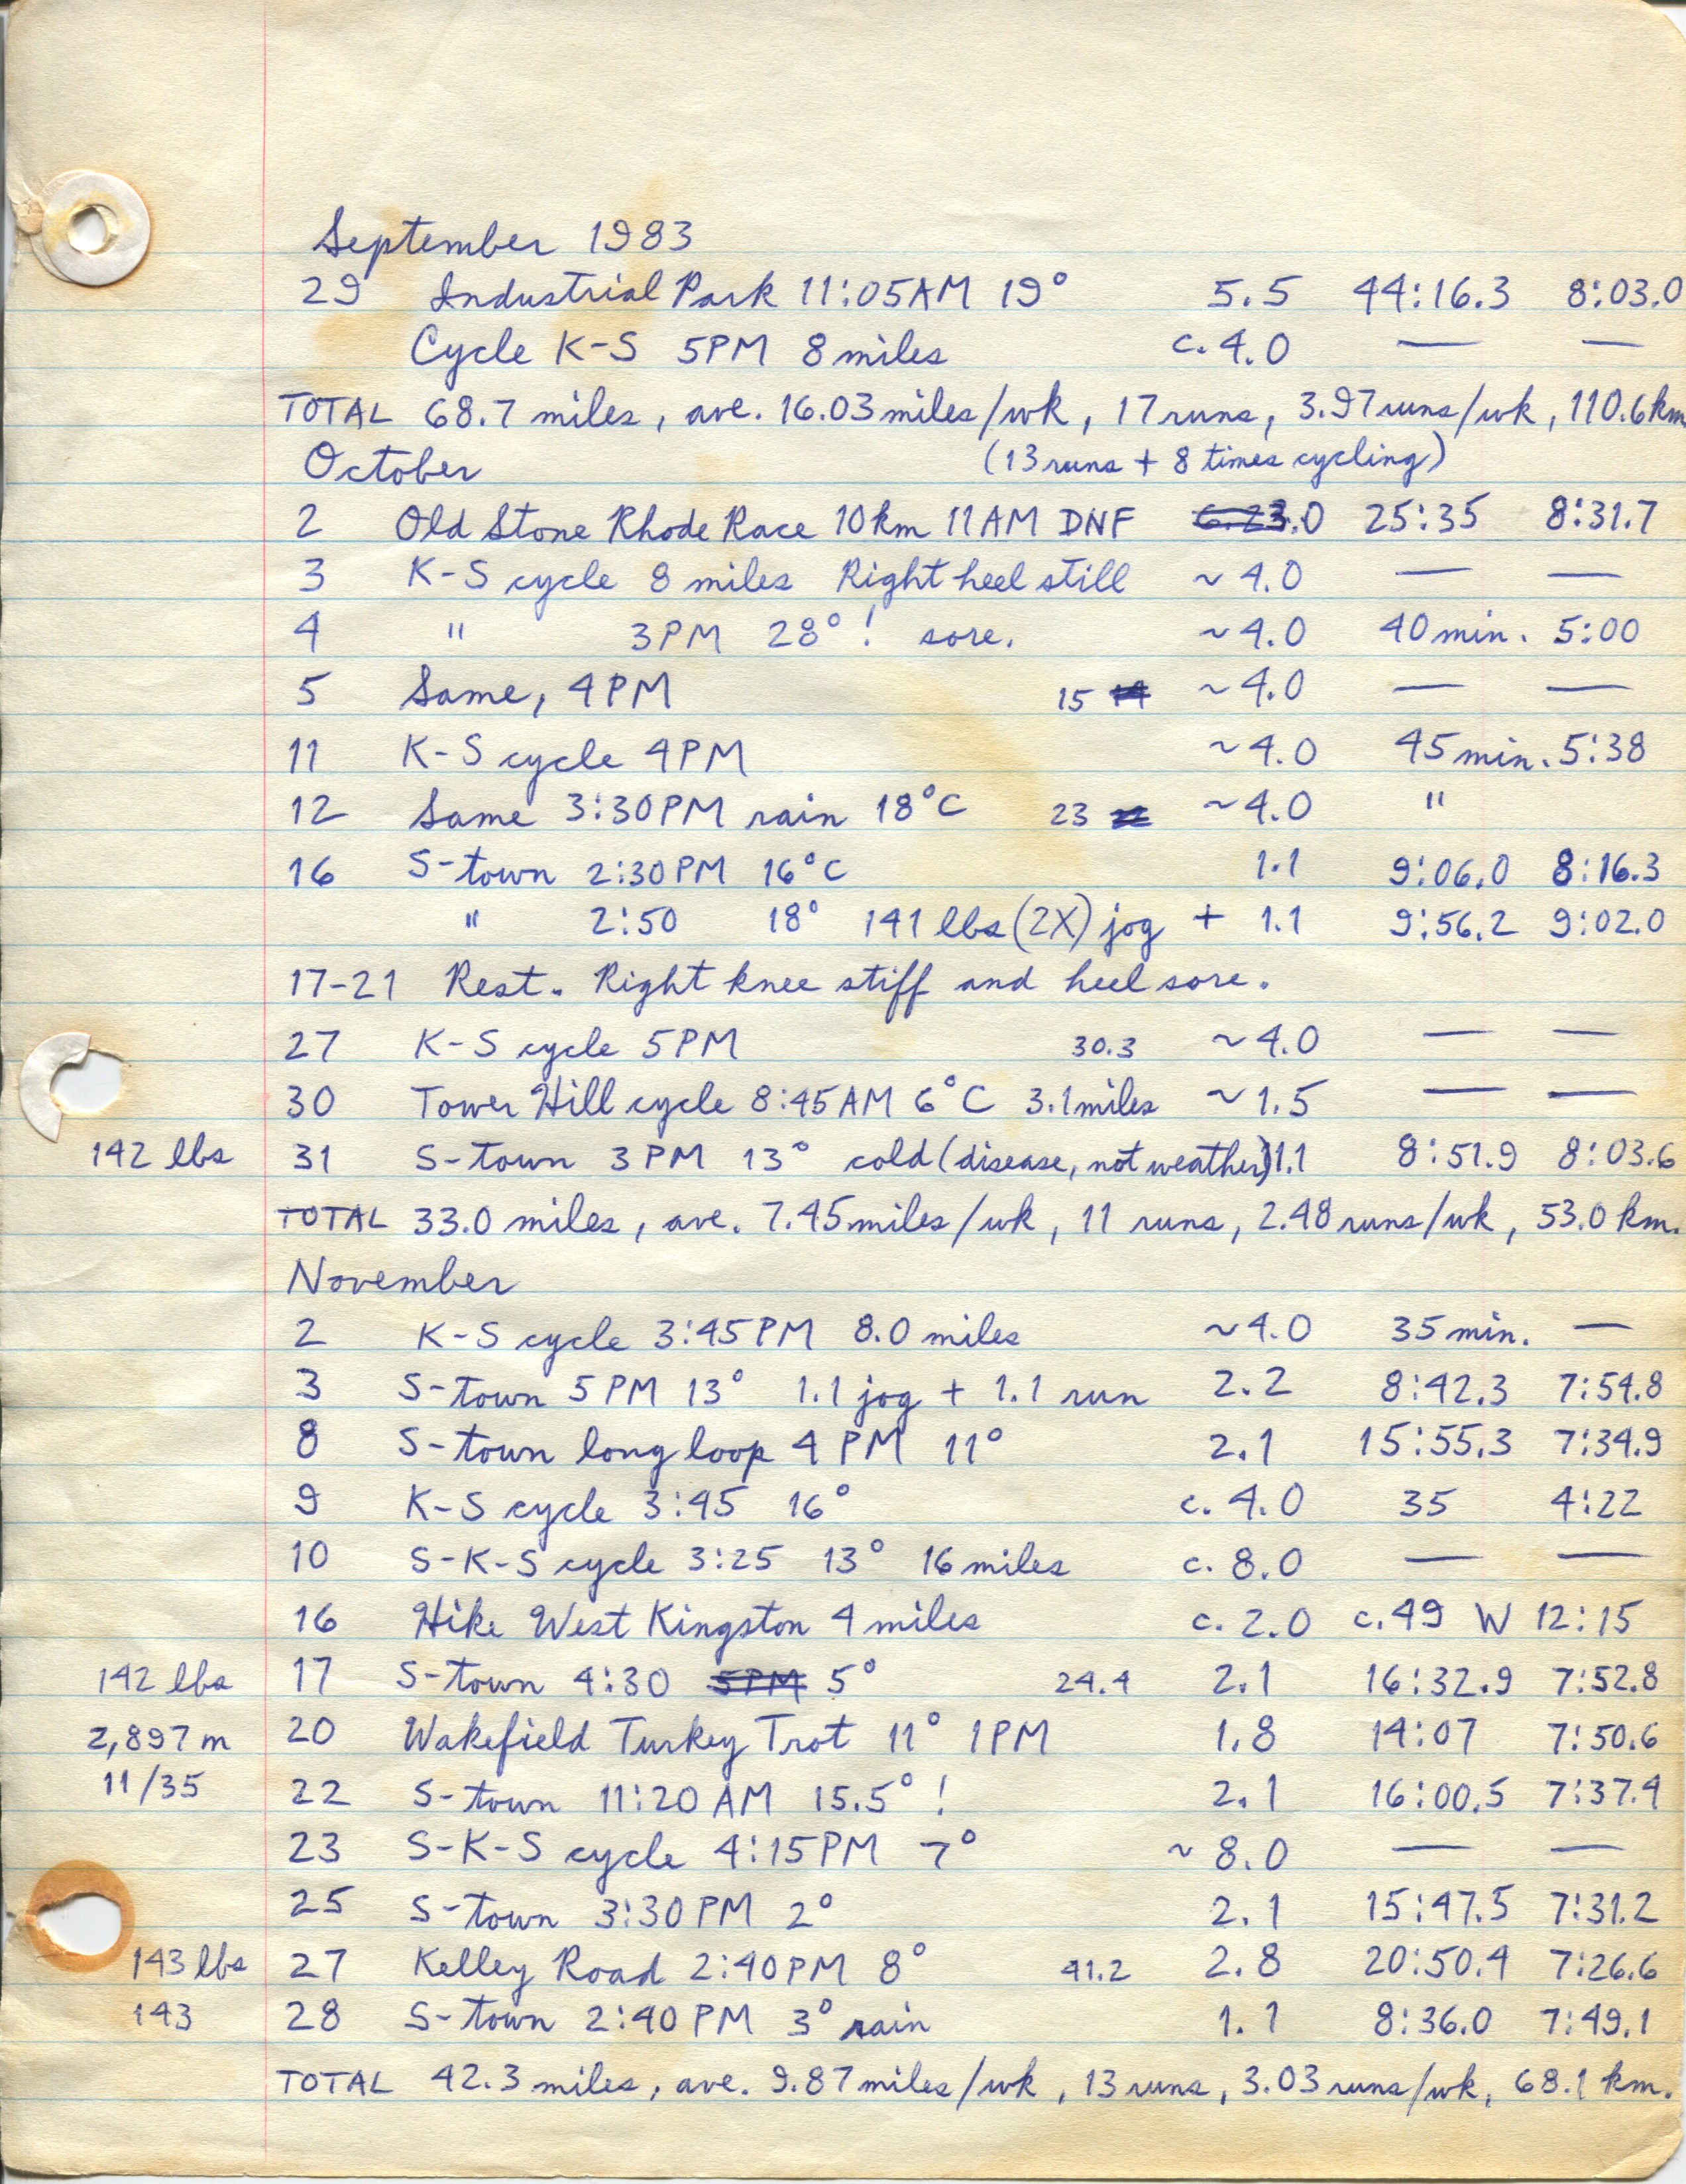 September 1983
29 Industrial Park 11:05AM 19° 5.5 44:16.3 8:03.0
Cycle K-S 5PM 8 miles c. 4.0 — —
TOTAL 68.7 miles, ave. 16.03 miles/wk, 17 runs, 3.97 runs/wk, 110.6 km
October (13 runs + 8 times cycling)
2 Old Stone Rhode Race 10km 11AM DNF 3.0 25:35 8:31.7
3 K-S cycle 8 miles Right heel still ~4.0 — —
4 " 3PM 28°! sore. ~4.0 40 min. 5:00
5 Same, 4PM 15 ~4.0 — —
11 K-S cycle 4PM ~4.0 45 min. 5:38
12 Same 3:30PM rain 18°C 23 ~4.0 "
16 S-town 2:30PM 16°C 1.1 9:06.0 8:16.3
" 2:50 18° 141 lbs (2X) jog + 1.1 9:56.2 9:02.0
17-21 Rest. Right knee stiff and heel sore.
27 K-S cycle 5PM 30.3 ~4.0 — —
30 Tower Hill cycle 8:45AM 6°C 3.1 miles ~1.5 — —
142 lbs 31 S-town 3PM 13° cold (disease, not weather) 1.1 8:51.9 8:03.6
TOTAL 33.0 miles, ave. 7.45 miles/wk, 11 runs, 2.48 runs/wk, 53.0 km.
November
2 K-S cycle 3:45PM 8.0 miles ~4.0 35 min. —
3 S-town 5PM 13° 1.1 jog + 1.1 run 2.2 8:42.3 7:54.8
8 S-town long loop 4PM 11° 2.1 15:55.3 7:34.9
9 K-S cycle 3:45 16° c. 4.0 35 4:22
10 S-K-S cycle 3:25 13° 16 miles c. 8.0 — —
16 Hike West Kingston 4 miles c. 2.0 c. 49 W 12:15
142 lbs 17 S-town 4:30 5PM 5° 24.4 2.1 16:32.9 7:52.8
2,897 m 20 Wakefield Turkey Trot 11° 1PM 1.8 14:07 7:50.6
11/35 22 S-town 11:20 AM 15.5°! 2.1 16:00.5 7:37.4
23 S-K-S cycle 4:15PM 7° ~8.0 — —
25 S-town 3:30PM 2° 2.1 15:47.5 7:31.2
143 lbs 27 Kelley Road 2:40PM 8° 41.2 2.8 20:50.4 7:26.6
143 28 S-town 2:40PM 3° rain 1.1 8:36.0 7:49.1
TOTAL 42.3 miles, ave. 9.87 miles/wk, 13 runs, 3.03 runs/wk, 68.1 km.